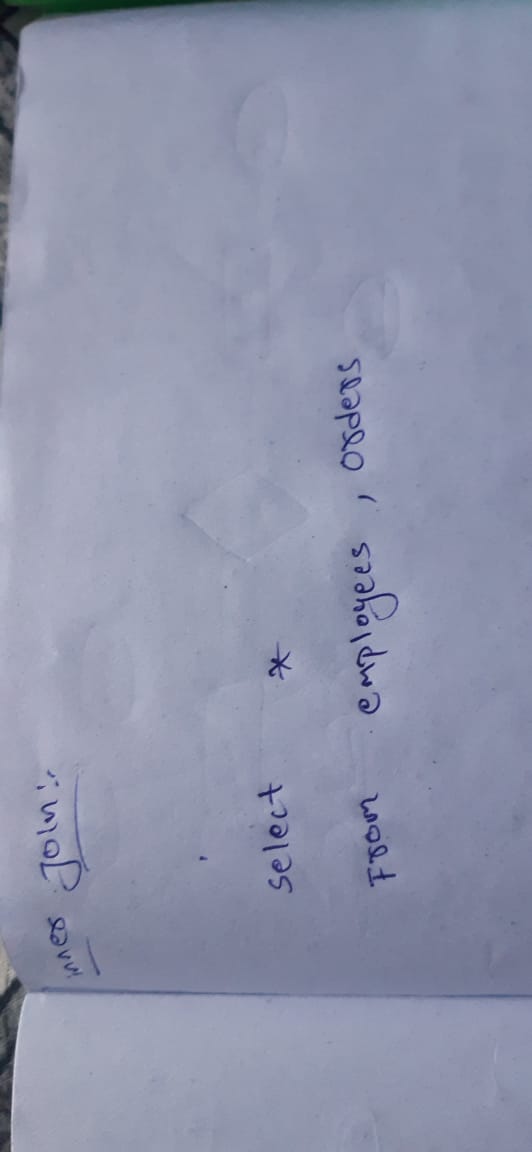 inner Join:-
select *
From employees, orders